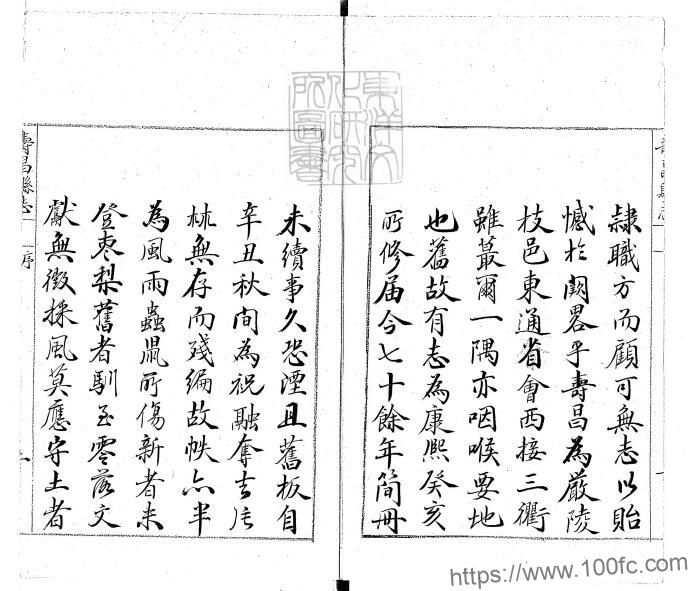 隷職方而顧可無志以貽
憾於闕畧乎壽昌為嚴陵
枝邑東通省會西接三衢
雖蕞爾一隅亦咽喉要地
也舊故有志為康熈癸亥
所修届今七十餘年簡冊
未續事久恐湮且舊板自
辛丑秋間為祝融奪去片
林無存而殘編故帙亦半
為風雨蟲鼠所傷新者未
登棗梨舊者馴至零落文
獻無徴採風莫應守土者
壽昌縣志
序
東洋文化研究所圖書
https://www.100fc.com